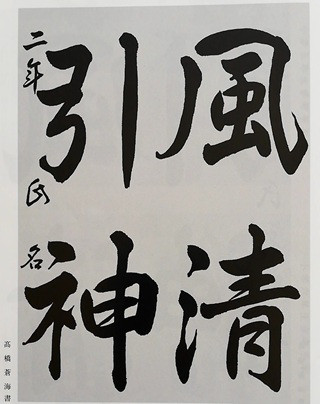 風清
引神
二年 氏名
高橋蒼海書